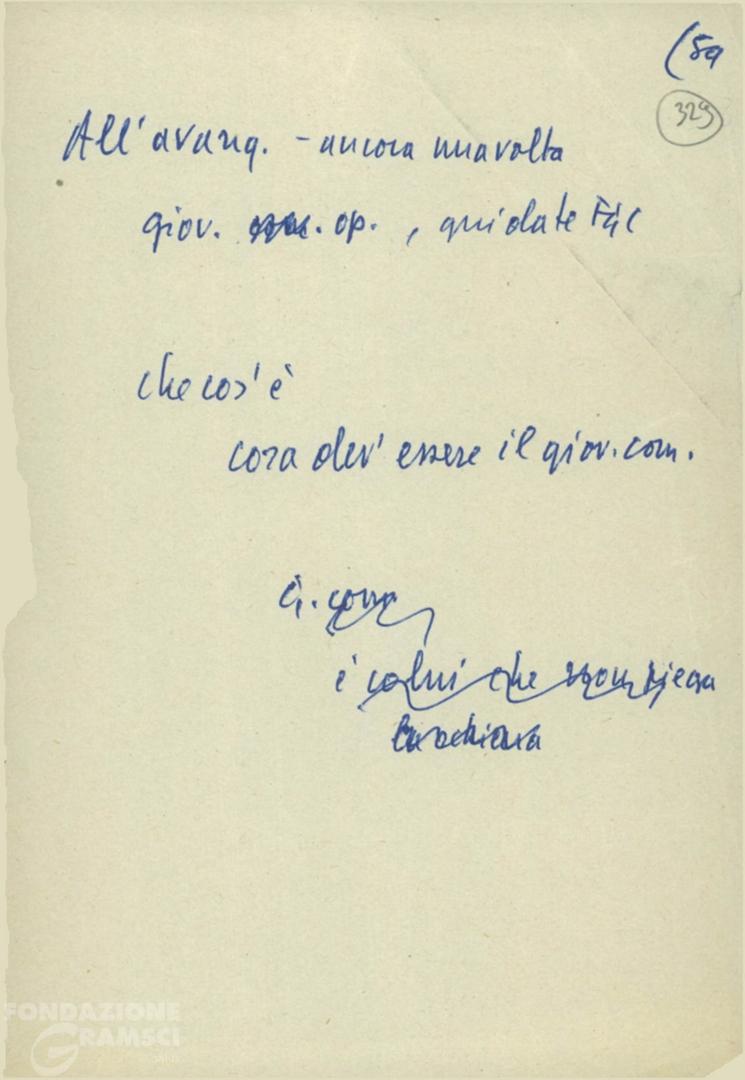 (5a
329
All'avang. - ancora una volta
giov. op., guidate FGC
che cos'è
cosa dev'essere il giov. com.
G. com.
è colui che non piega
la schiena
FONDAZIONE
GRAMSCI